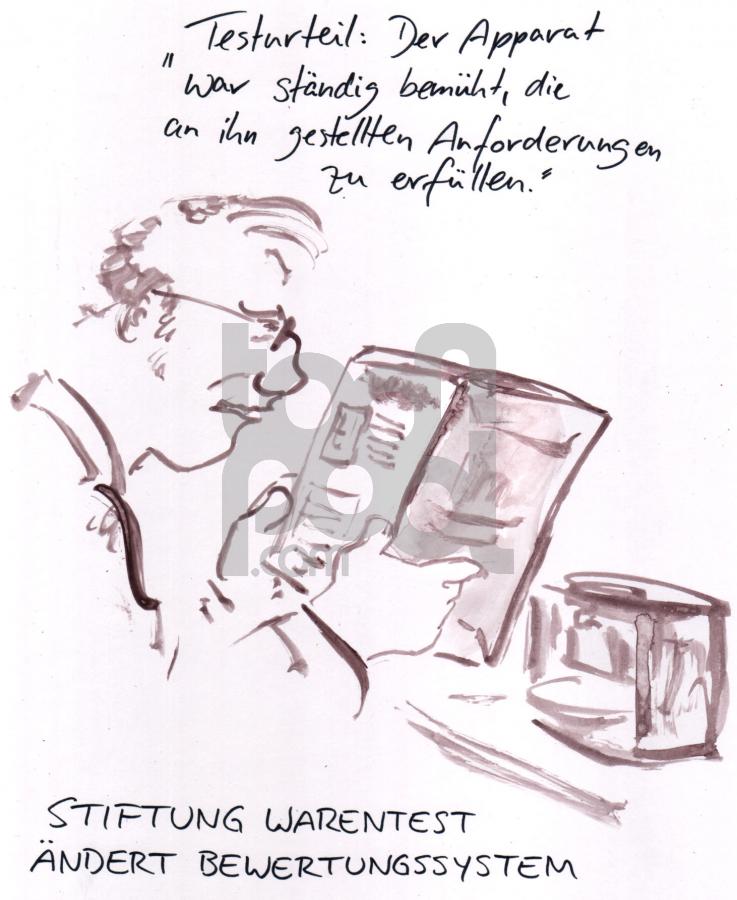 Testurteil: Der Apparat
"war ständig bemüht, die
an ihn gestellten Anforderungen
zu erfüllen."
toonpool.com
STIFTUNG WARENTEST
ÄNDERT BEWERTUNGSSYSTEM